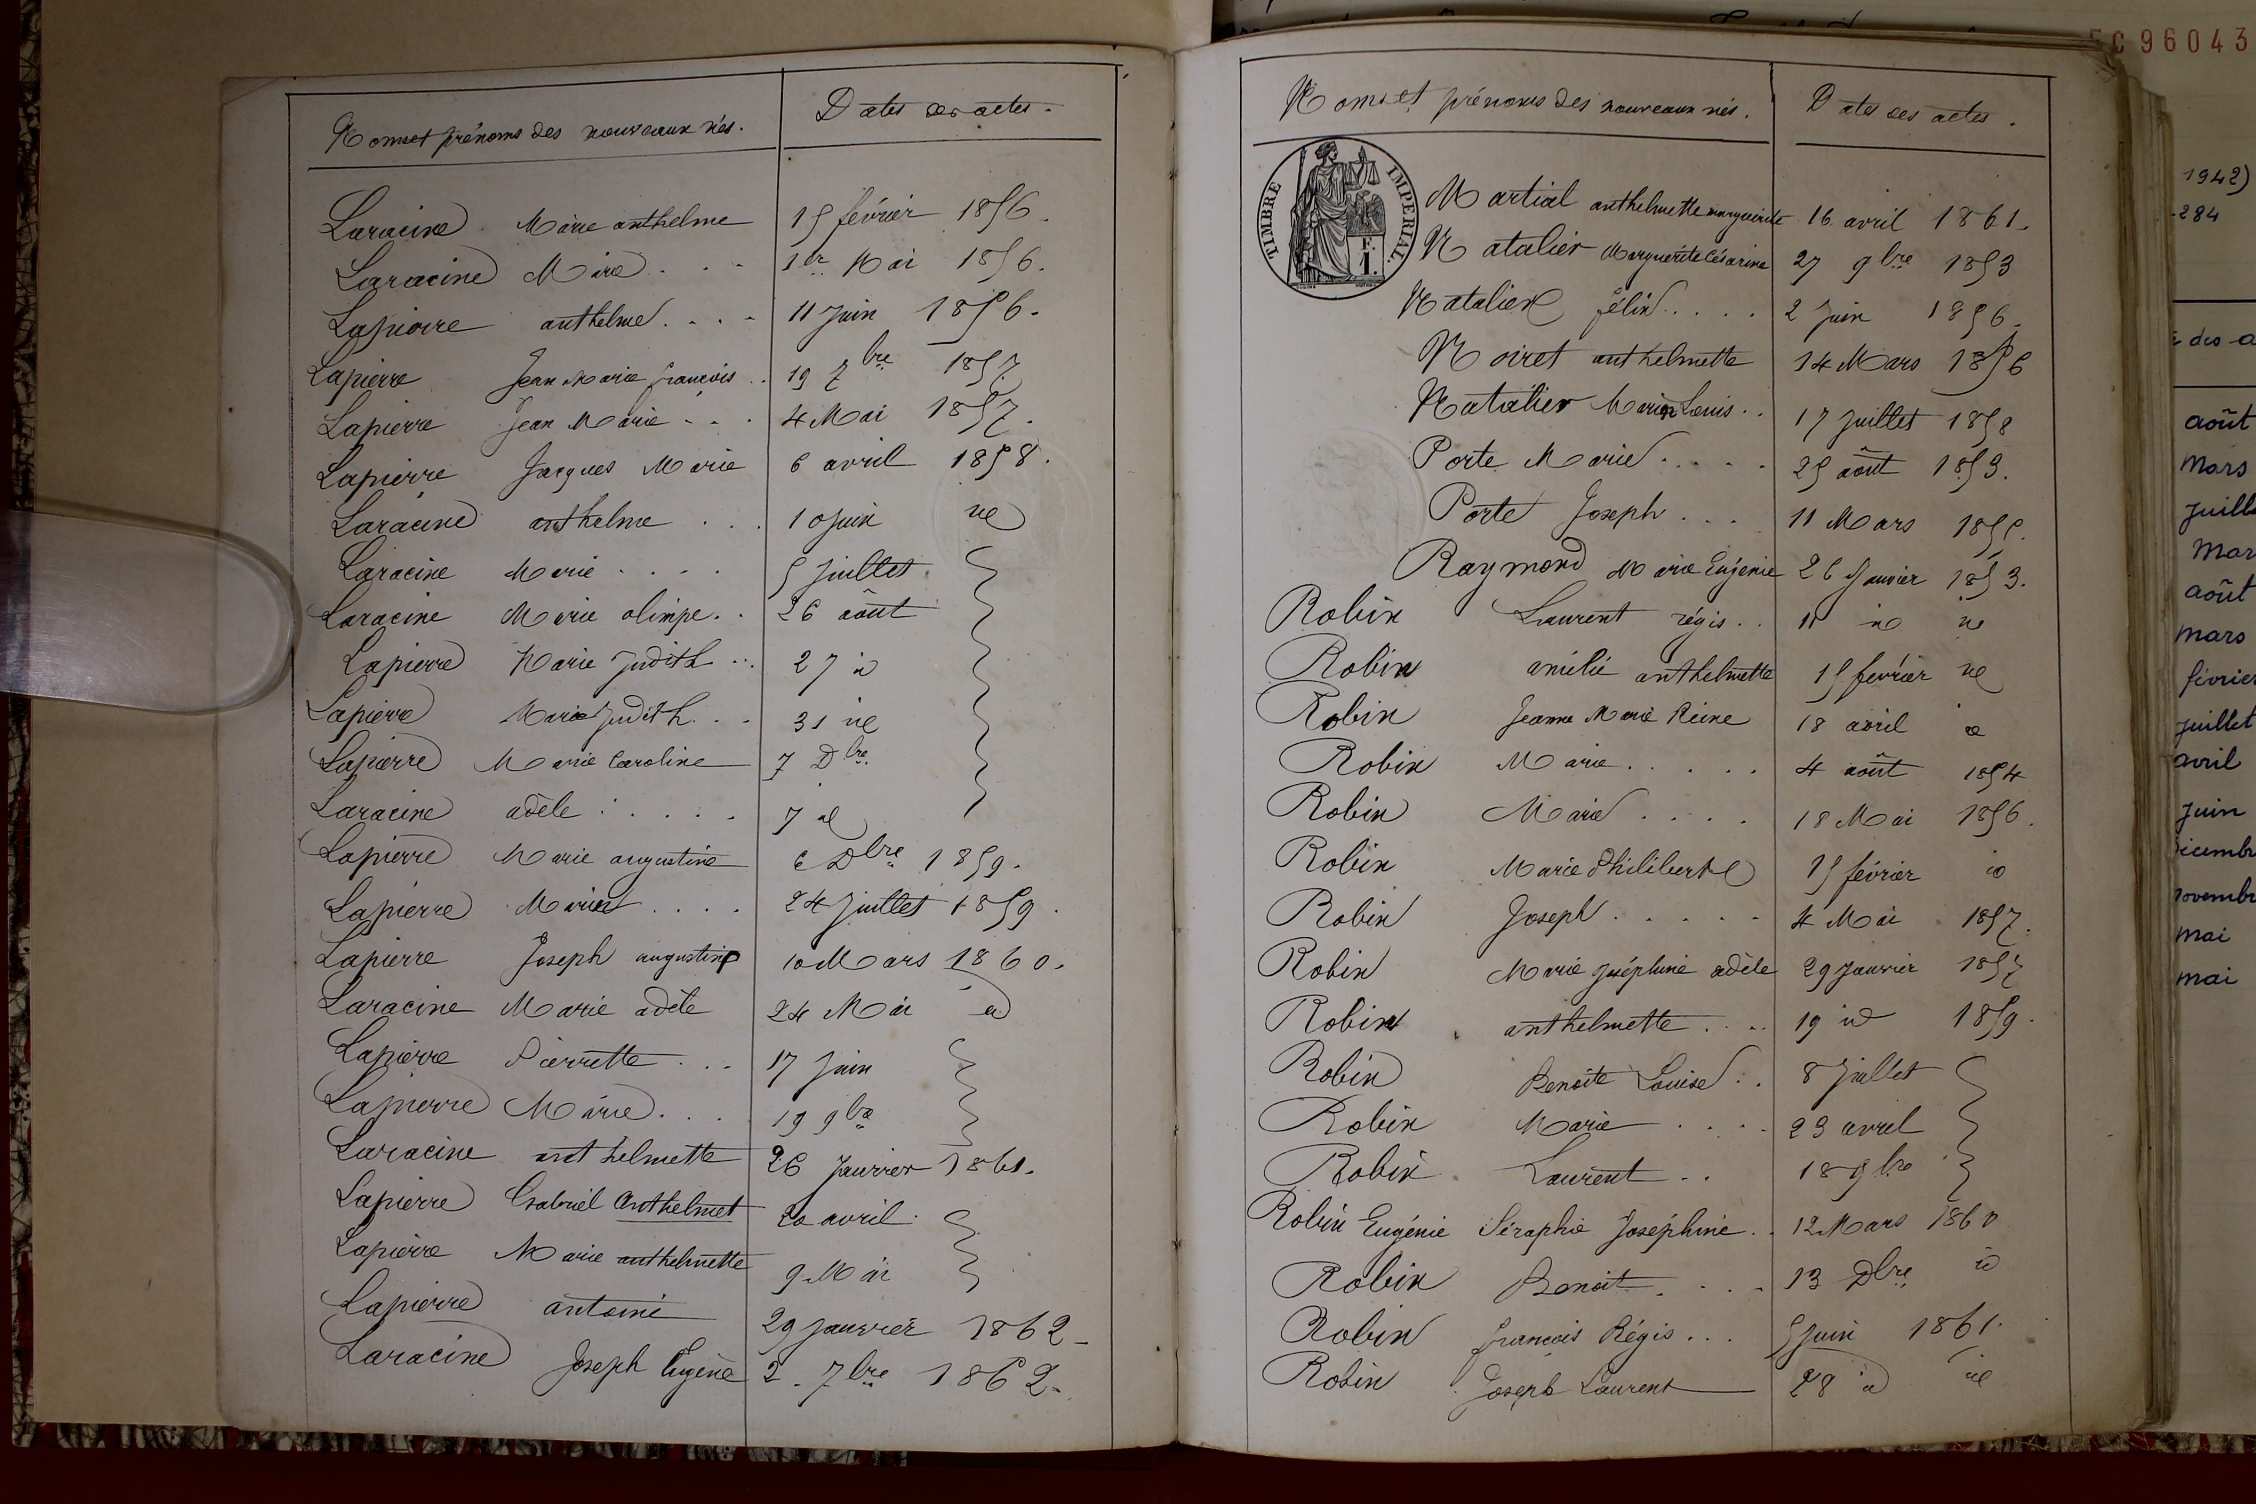 Noms et prénoms des nouveaux nés. Dates des actes.
Laracine Marie anthelme 15 février 1856.
Laracine Marie . . . 1er Mai 1856.
Lapierre anthelme . . . 11 Juin 1856.
Lapierre Jean Marie françois . . 19 7bre 1857.
Lapierre Jean Marie . . . 4 Mai 1857.
Lapierre Jacques Marie 6 avril 1858.
Laracine anthelme . . . 10 Juin id
Laracine Marie . . . . 5 Juillet
Laracine Marie olimpe . . 26 août
Lapierre Marie Judith . . . 27 id
Lapierre Marie Judith . . . 31 id
Lapierre Marie Caroline 7 Dbre
Laracine adèle . . . . . 7 id
Lapierre Marie augustine 6 Dbre 1859.
Lapierre Marie . . . . 24 Juillet 1859.
Lapierre Joseph augustin 10 Mars 1860.
Laracine Marie adèle 24 Mai id
Lapierre Pierrette . . . 17 Juin
Lapierre Marie . . . 19 9bre
Laracine anthelmette 26 Janvier 1861.
Lapierre Gabriel Anthelmet 20 avril.
Lapierre Marie anthelmette 9 Mai
Lapierre antoine 29 Janvier 1862
Laracine Joseph Eugène 2 7bre 1862.
Noms et prénoms des nouveaux nés. Dates des actes.
TIMBRE IMPERIAL.
F.
1.
Martial anthelmette marguerite 16 avril 1861.
Natalier Marguerite Césarine 27 9bre 1853
Natalier félix . . . . . 2 Juin 1856.
Noiret anthelmette 14 Mars 1856
Natalier Marie Louis . . 17 Juillet 1858
Porte Marie . . . . . 25 août 1853.
Porte Joseph . . . 11 Mars 1855.
Raymond Marie Eugénie 26 Janvier 1853.
Robin Laurent régis . . 11 id id
Robin amélie anthelmette 15 février id
Robin Jeanne Marie Reine 18 avril id
Robin Marie . . . . . 4 août 1854
Robin Marie . . . . 18 Mai 1856.
Robin Marie Philiberte 15 février id
Robin Joseph . . . . . 4 Mai 1857.
Robin Marie Joséphine adèle 29 Janvier 1857
Robin anthelmette . . . . 19 id 1859.
Robin Benoîte Louise . . 8 Juillet
Robin Marie . . . . 23 avril
Robin Laurent . . 18 9bre
Robin Eugénie Séraphie Joséphine . . 12 Mars 1860
Robin Benoit . . . . 13 Dbre id
Robin françois Régis . . . 5 Juin 1861.
Robin Joseph Laurent 28 id id
5C96043
1942)
284
des a
août
Mars
Juill
Mar
août
mars
février
juillet
avril
Juin
icembr
novembr
mai
mai